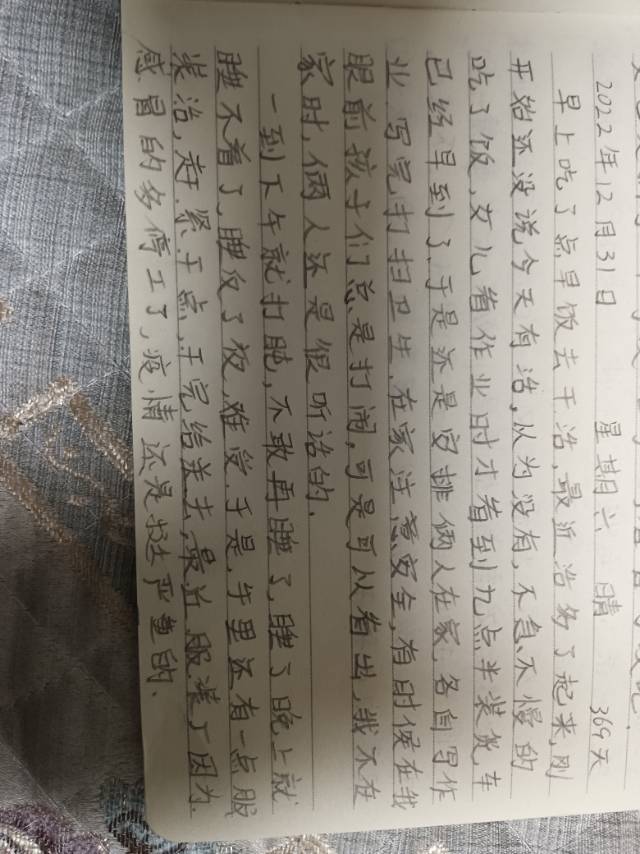 2022年12月31日 星期六 晴 364天
早上吃了点早饭去干活,最近活多了起来,刚
开始还没说今天有活,以为没有,不急不慢的
吃了饭,女儿看作业时才看到九点半装货,车
已经早到了,于是还是安排俩人在家,各自写作
业,写完打扫卫生,在家注意安全,有时候在我
眼前孩子们总是打闹,可是可以看出,我不在
家时,俩人还是很听话的.
一到下午就打盹,不敢再睡了,睡了晚上就
睡不着了,睡反了夜,难受,于是,午里还有一点服
装活,赶紧干点,干完给送去,最近服装厂因为
感冒的多停工了,疫情还是挺严重的.